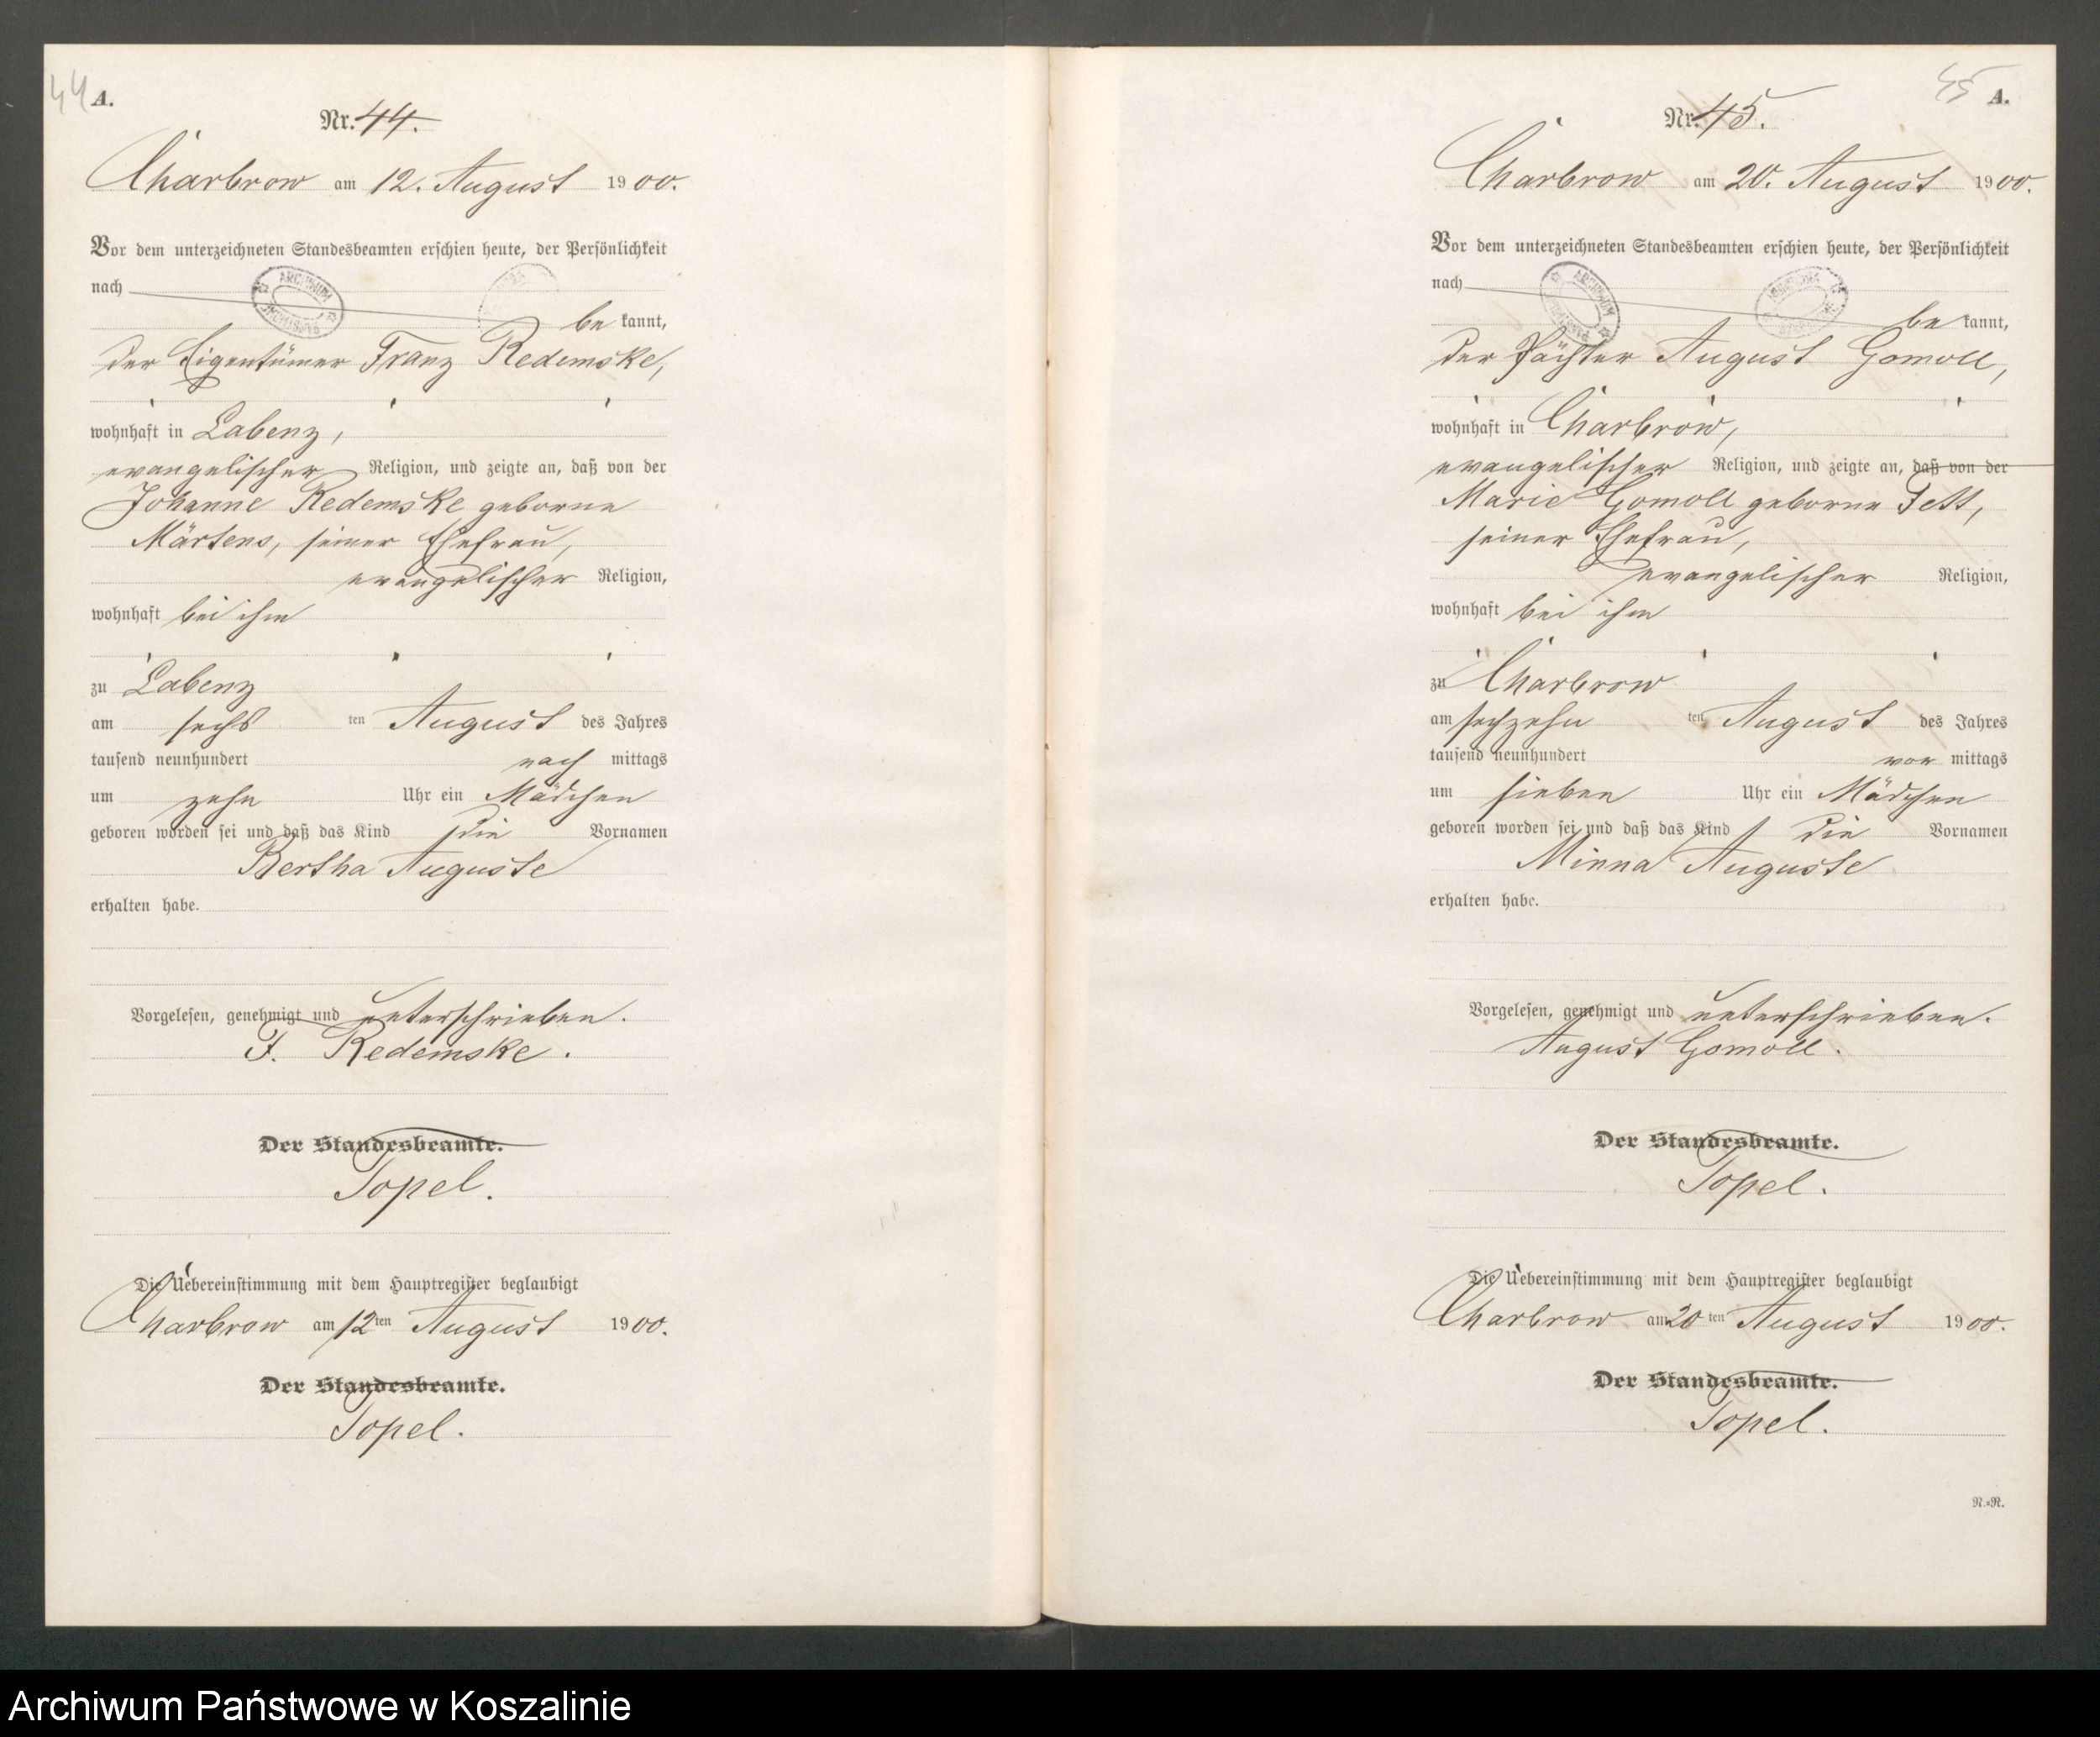 44 A.
Nr. 44.
Charbrow am 12. August 1900.
Vor dem unterzeichneten Standesbeamten erschien heute, der Persönlichkeit
nach
be kannt,
der Eigentümer Franz Redemske,
wohnhaft in Labenz,
evangelischer Religion, und zeigte an, daß von der
Johanne Redemske geborne
Märtens, seiner Ehefrau,
evangelischer Religion,
wohnhaft bei ihm
zu Labenz
am sechs ten August des Jahres
tausend neunhundert nach mittags
um zehn Uhr ein Mädchen
geboren worden sei und daß das Kind die Vornamen
Bertha Auguste
erhalten habe.
Vorgelesen, genehmigt und unterschrieben.
F. Redemske.
Der Standesbeamte.
Topel.
Die Uebereinstimmung mit dem Hauptregister beglaubigt
Charbrow am 12ten August 1900.
Der Standesbeamte.
Topel.
45 A.
Nr. 45.
Charbrow am 20. August 1900.
Vor dem unterzeichneten Standesbeamten erschien heute, der Persönlichkeit
nach
be kannt,
der Pächter August Gomoll,
wohnhaft in Charbrow,
evangelischer Religion, und zeigte an, daß von der
Marie Gomoll geborne Fett,
seiner Ehefrau,
evangelischer Religion,
wohnhaft bei ihm
zu Charbrow
am sechzehn ten August des Jahres
tausend neunhundert vor mittags
um sieben Uhr ein Mädchen
geboren worden sei und daß das Kind die Vornamen
Minna Auguste
erhalten habe.
Vorgelesen, genehmigt und unterschrieben.
August Gomoll.
Der Standesbeamte.
Topel.
Die Uebereinstimmung mit dem Hauptregister beglaubigt
Charbrow am 20 ten August 1900.
Der Standesbeamte.
Topel.
N.=N.
Archiwum Państwowe w Koszalinie